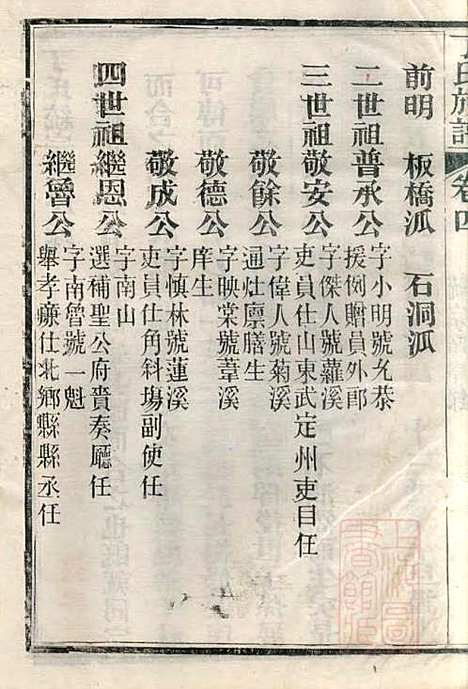 丁氏族譜 卷四
前明 板橋派 石洞派
二世祖普承公
字小明號允恭
援例贈員外郎
三世祖敬安公
字傑人號蘿溪
吏員仕山東武定州吏目任
敬餘公
字偉人號菊溪
通灶廪膳生
敬德公
字映棠號葦溪
庠生
敬成公
字慎林號蓮溪
吏員仕角斜塲副使任
四世祖繼恩公
字南山
選補聖公府賫奏廳任
繼魯公
字南曾號一魁
舉孝亷仕北鄉縣縣丞任